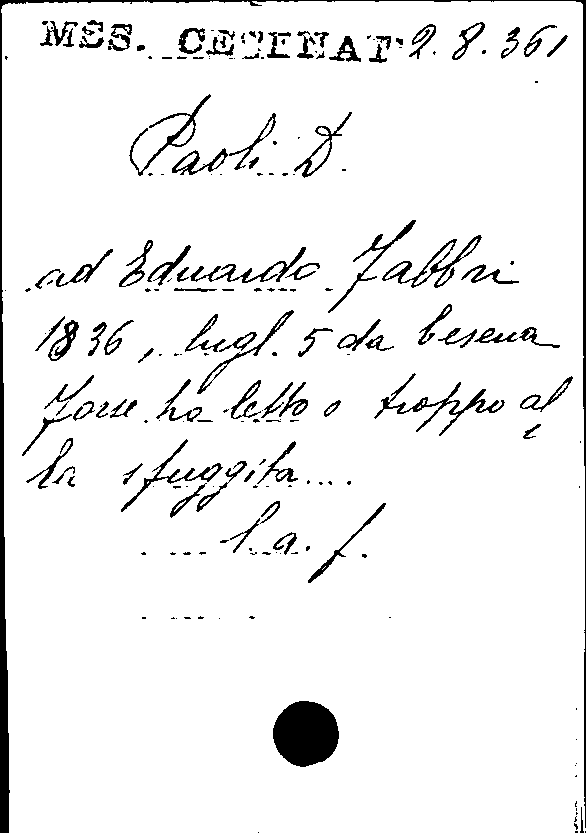 MSS. CESENAT 2. 8. 361
Paoli D.
ad Eduardo Fabbri
1836, lugl. 5 da Cesena
Forse ho letto o troppo al
la sfuggita....
l. a. f.